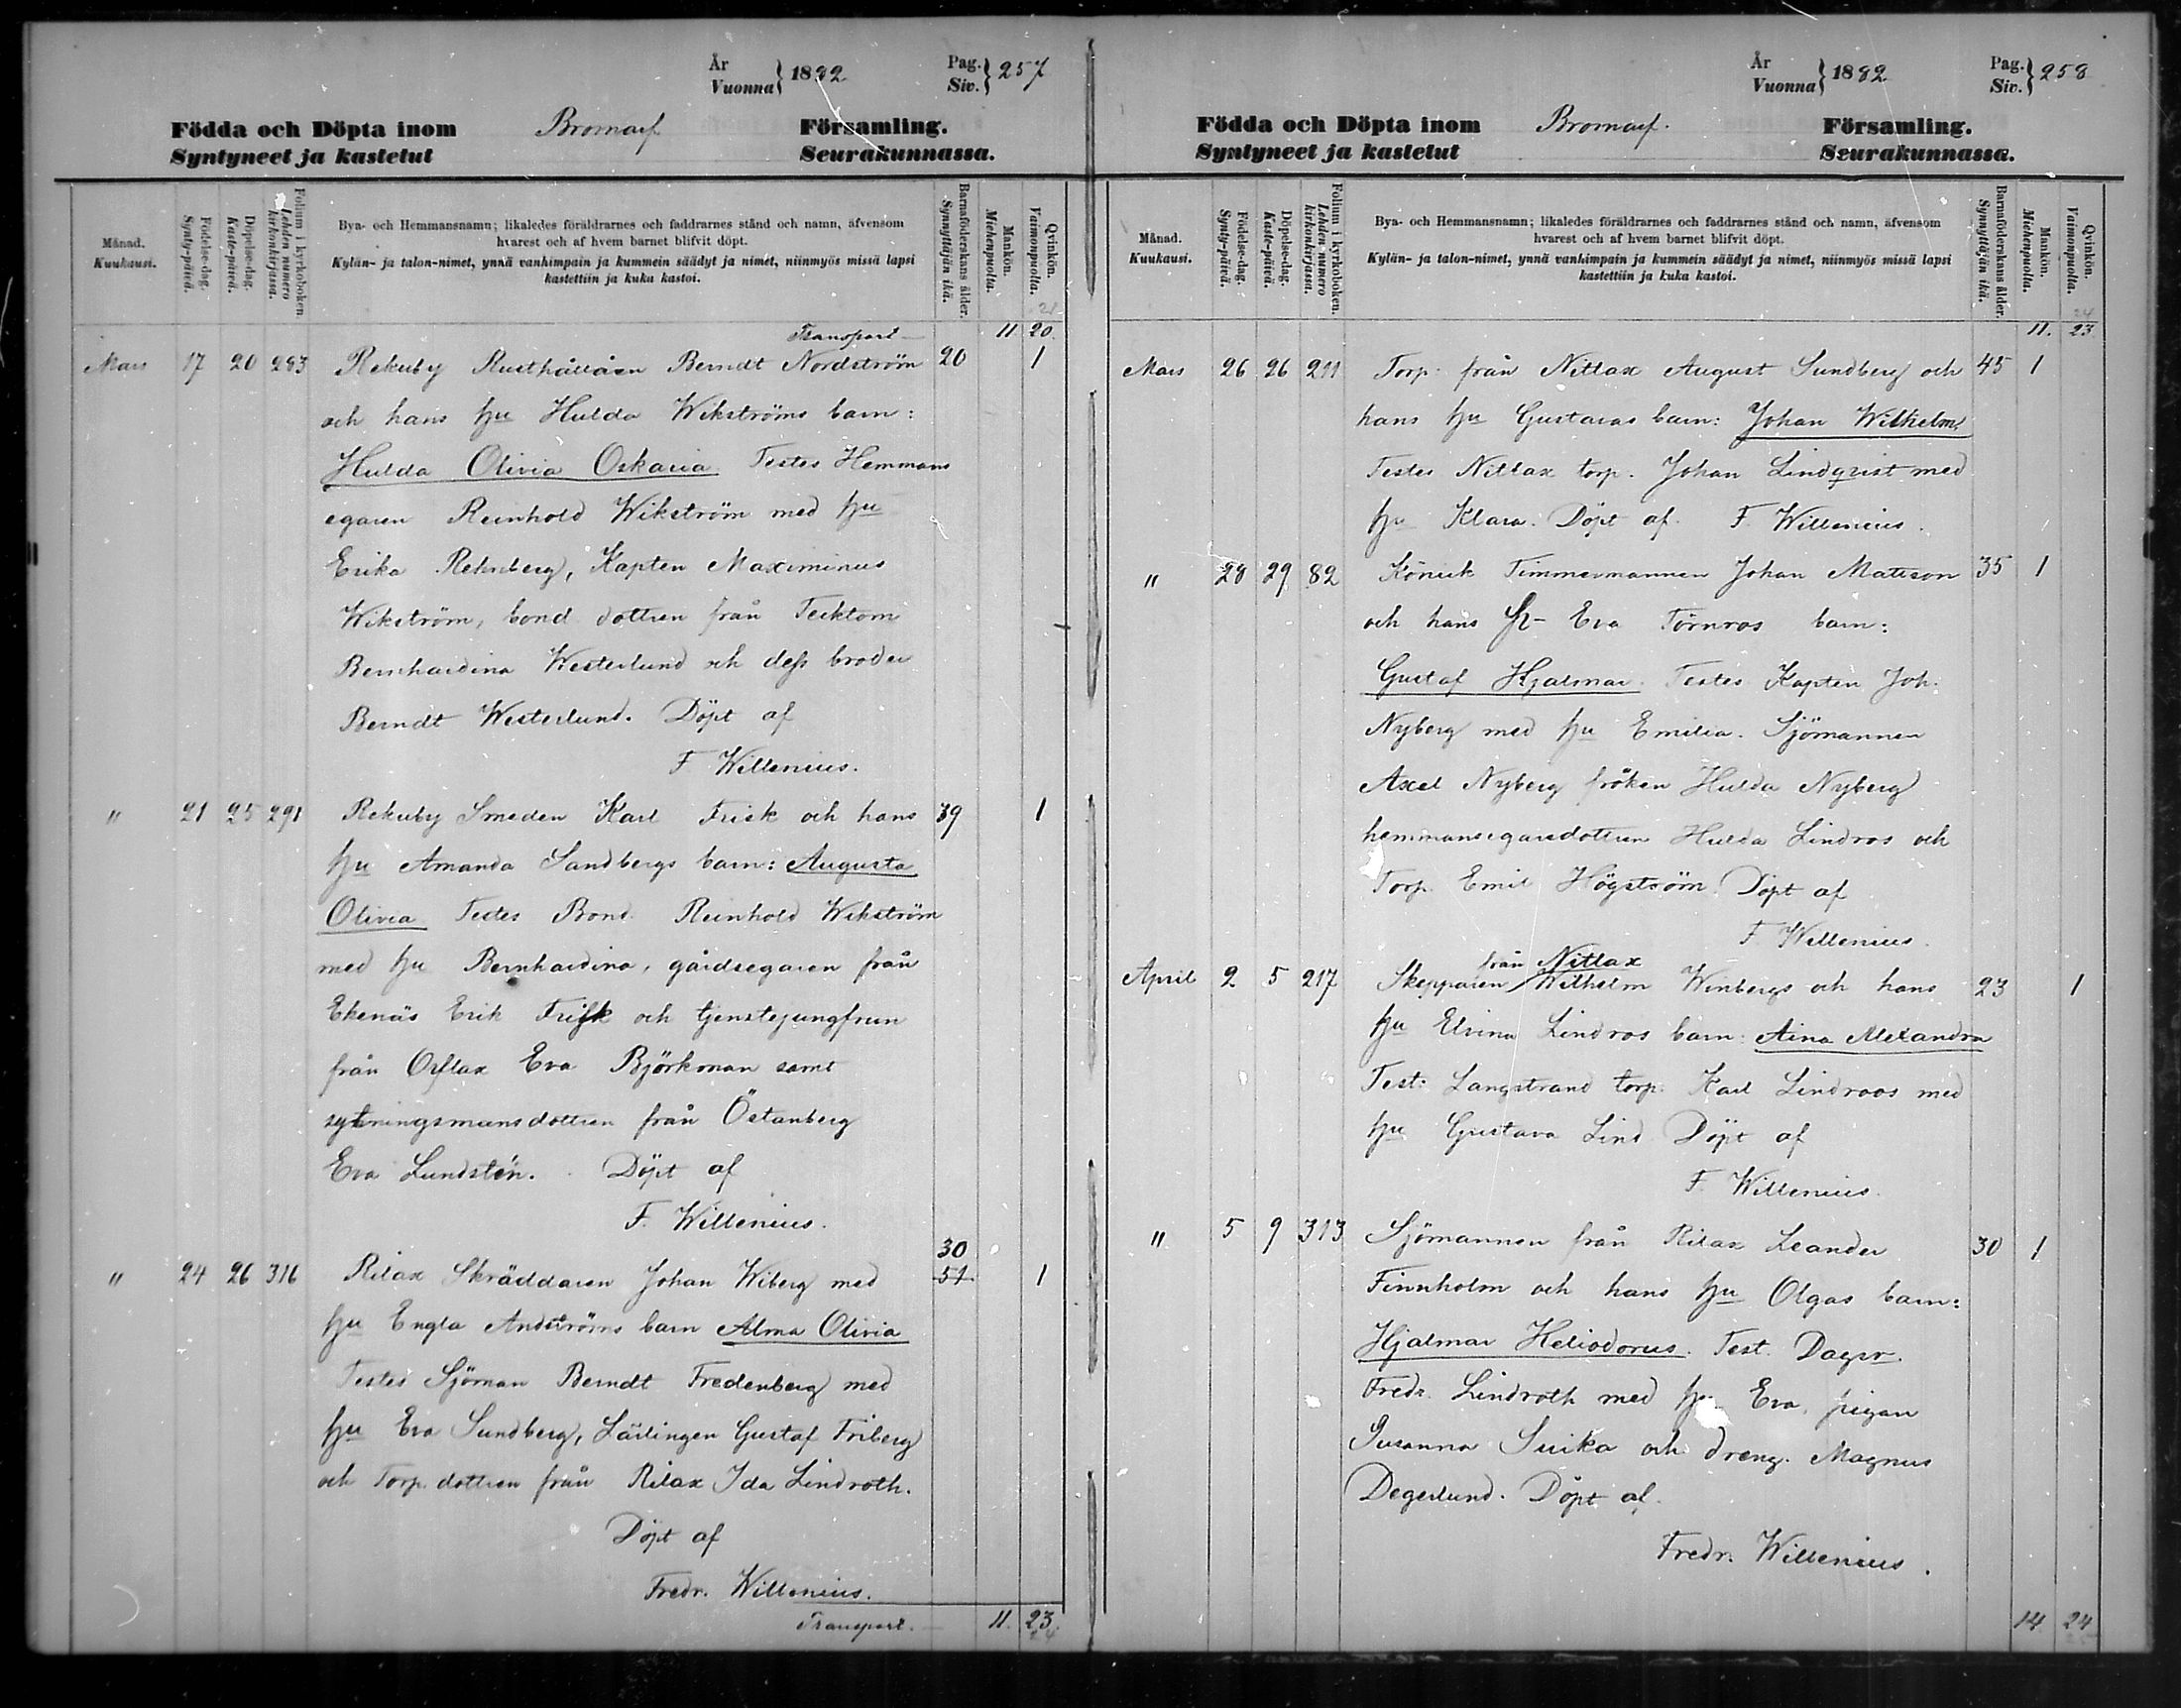 År
Vuonna } 1882
Pag.
Siv. } 257
Födda och Döpta inom Bromarf Församling.
Syntyneet ja kastetut Seurakunnassa.
Månad.
Kuukausi.
Födelse-dag.
Synty-päivä.
Döpelse-dag.
Kaste-päivä.
Folium i kyrkoboken.
Lehden numero kirkonkirjassa.
Bya- och Hemmansnamn; likaledes föräldrarnes och faddrarnes stånd och namn, äfvensom
hvarest och af hvem barnet blifvit döpt.
Kylän- ja talon-nimet, ynnä vanhimpain ja kummein säädyt ja nimet, niinmyös missä lapsi
kastettiin ja kuka kastoi.
Barnaföderskans ålder.
Synnyttäjän ikä.
Mankön.
Miehenpuolta.
Qvinkön.
Vaimonpuolta.
21
Transport 11 20
Mars 17 20 283 Rekuby Rusthållåen Berndt Nordström 20 1
och hans hu Hulda Wikströms barn:
Hulda Olivia Oskaria. Testes Hemmans
egaren Reinhold Wikström med hu
Erika Rehnberg, Kapten Maximinus
Wikström, bond dottren från Tecktom
Bernhardina Westerlund och dess broder
Berndt Westerlund. Döpt af
F. Willenius.
" 21 25 291 Rekuby Smeden Karl Frisk och hans 39 1
hu Amanda Sandbergs barn: Augusta
Olivia Testes Bond. Reinhold Wikström
med hu Bernhardina, gårdsegaren från
Ekenäs Erik Frisk och tjenstejungfrun
från Orslax Eva Björkman samt
sytningsmansdottren från Östanberg
Eva Lundstén. Döpt af
F. Willenius.
30
" 24 26 316 Rilax Skräddaren Johan Wiberg med 51 1
hu Engla Andströms barn Alma Olivia
Testes Sjöman Berndt Fredenberg med
hu Eva Sundberg, Lärlingen Gustaf Friberg
och Torp. dottren från Rilax Ida Lindroth.
Döpt af
Fredr. Willenius.
Transport. 11. 23.
24
År
Vuonna } 1882
Pag.
Siv. } 258
Födda och Döpta inom Bromarf. Församling.
Syntyneet ja kastetut Seurakunnassa.
Månad.
Kuukausi.
Födelse-dag.
Synty-päivä.
Döpelse-dag.
Kaste-päivä.
Folium i kyrkoboken.
Lehden numero kirkonkirjassa.
Bya- och Hemmansnamn; likaledes föräldrarnes och faddrarnes stånd och namn, äfvensom
hvarest och af hvem barnet blifvit döpt.
Kylän- ja talon-nimet, ynnä vanhimpain ja kummein säädyt ja nimet, niinmyös missä lapsi
kastettiin ja kuka kastoi.
Barnaföderskans ålder.
Synnyttäjän ikä.
Mankön.
Miehenpuolta.
Qvinkön.
Vaimonpuolta.
24
11. 23
Mars 26 26 211 Torp. från Nitlax August Sundberg och 45 1
hans hu Gustavas barn: Johan Wilhelm
Testes Nitlax torp. Johan Lindqvist med
hu Klara. Döpt af F. Willenius.
" 28 29 82 Könick Timmermannen Johan Mattson 35 1
och hans hu Eva Törnros barn:
Gustaf Hjalmar. Testes Kapten Joh.
Nyberg med hu Emilia. Sjömannen
Axel Nyberg fröken Hulda Nyberg
hemmansegaredottren Hulda Lindros och
Torp. Emil Högström. Döpt af
F Willenius.
från Nitlax
April 2 5 217 Skepparen Wilhelm Winbergs och hans 23 1
hu Elvina Lindros barn: Aina Alexandra
Test: Langstrand torp. Karl Lindroos med
hu Gustava Lind Döpt af
F. Willenius.
" 5 9 313 Sjömannen från Rilax Leander 30 1
Finnholm och hans hu Olgas barn:
Hjalmar Heliodorus. Test. Dagsv.
Fredr. Lindroth med hu Eva, pigan
Susanna Suika och dreng. Magnus
Degerlund. Döpt af.
Fredr. Willenius.
14 24